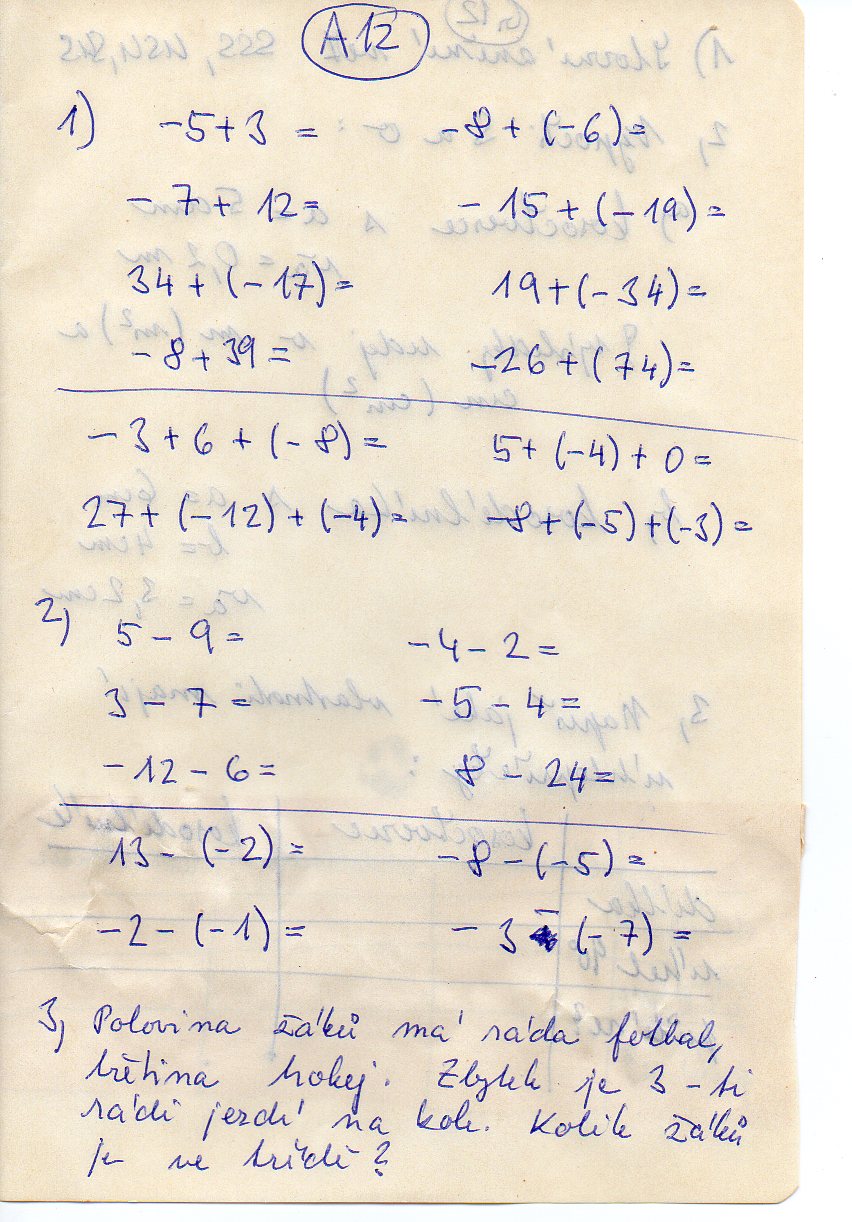 A12
1) -5+3 = -8+(-6)=
-7+12= -15+(-19)=
34+(-17)= 19+(-34)=
-8+39= -26+(74)=
-3+6+(-8)= 5+(-4)+0=
27+(-12)+(-4)= -8+(-5)+(-3)=
2) 5-9= -4-2=
3-7= -5-4=
-12-6= 8-24=
13-(-2)= -8-(-5)=
-2-(-1)= -3-(-7)=
3, Polovina žáků má ráda fotbal,
třetina hokej. Zbytek je 3 - ti
rádi jezdí na kole. Kolik žáků
je ve třídě?